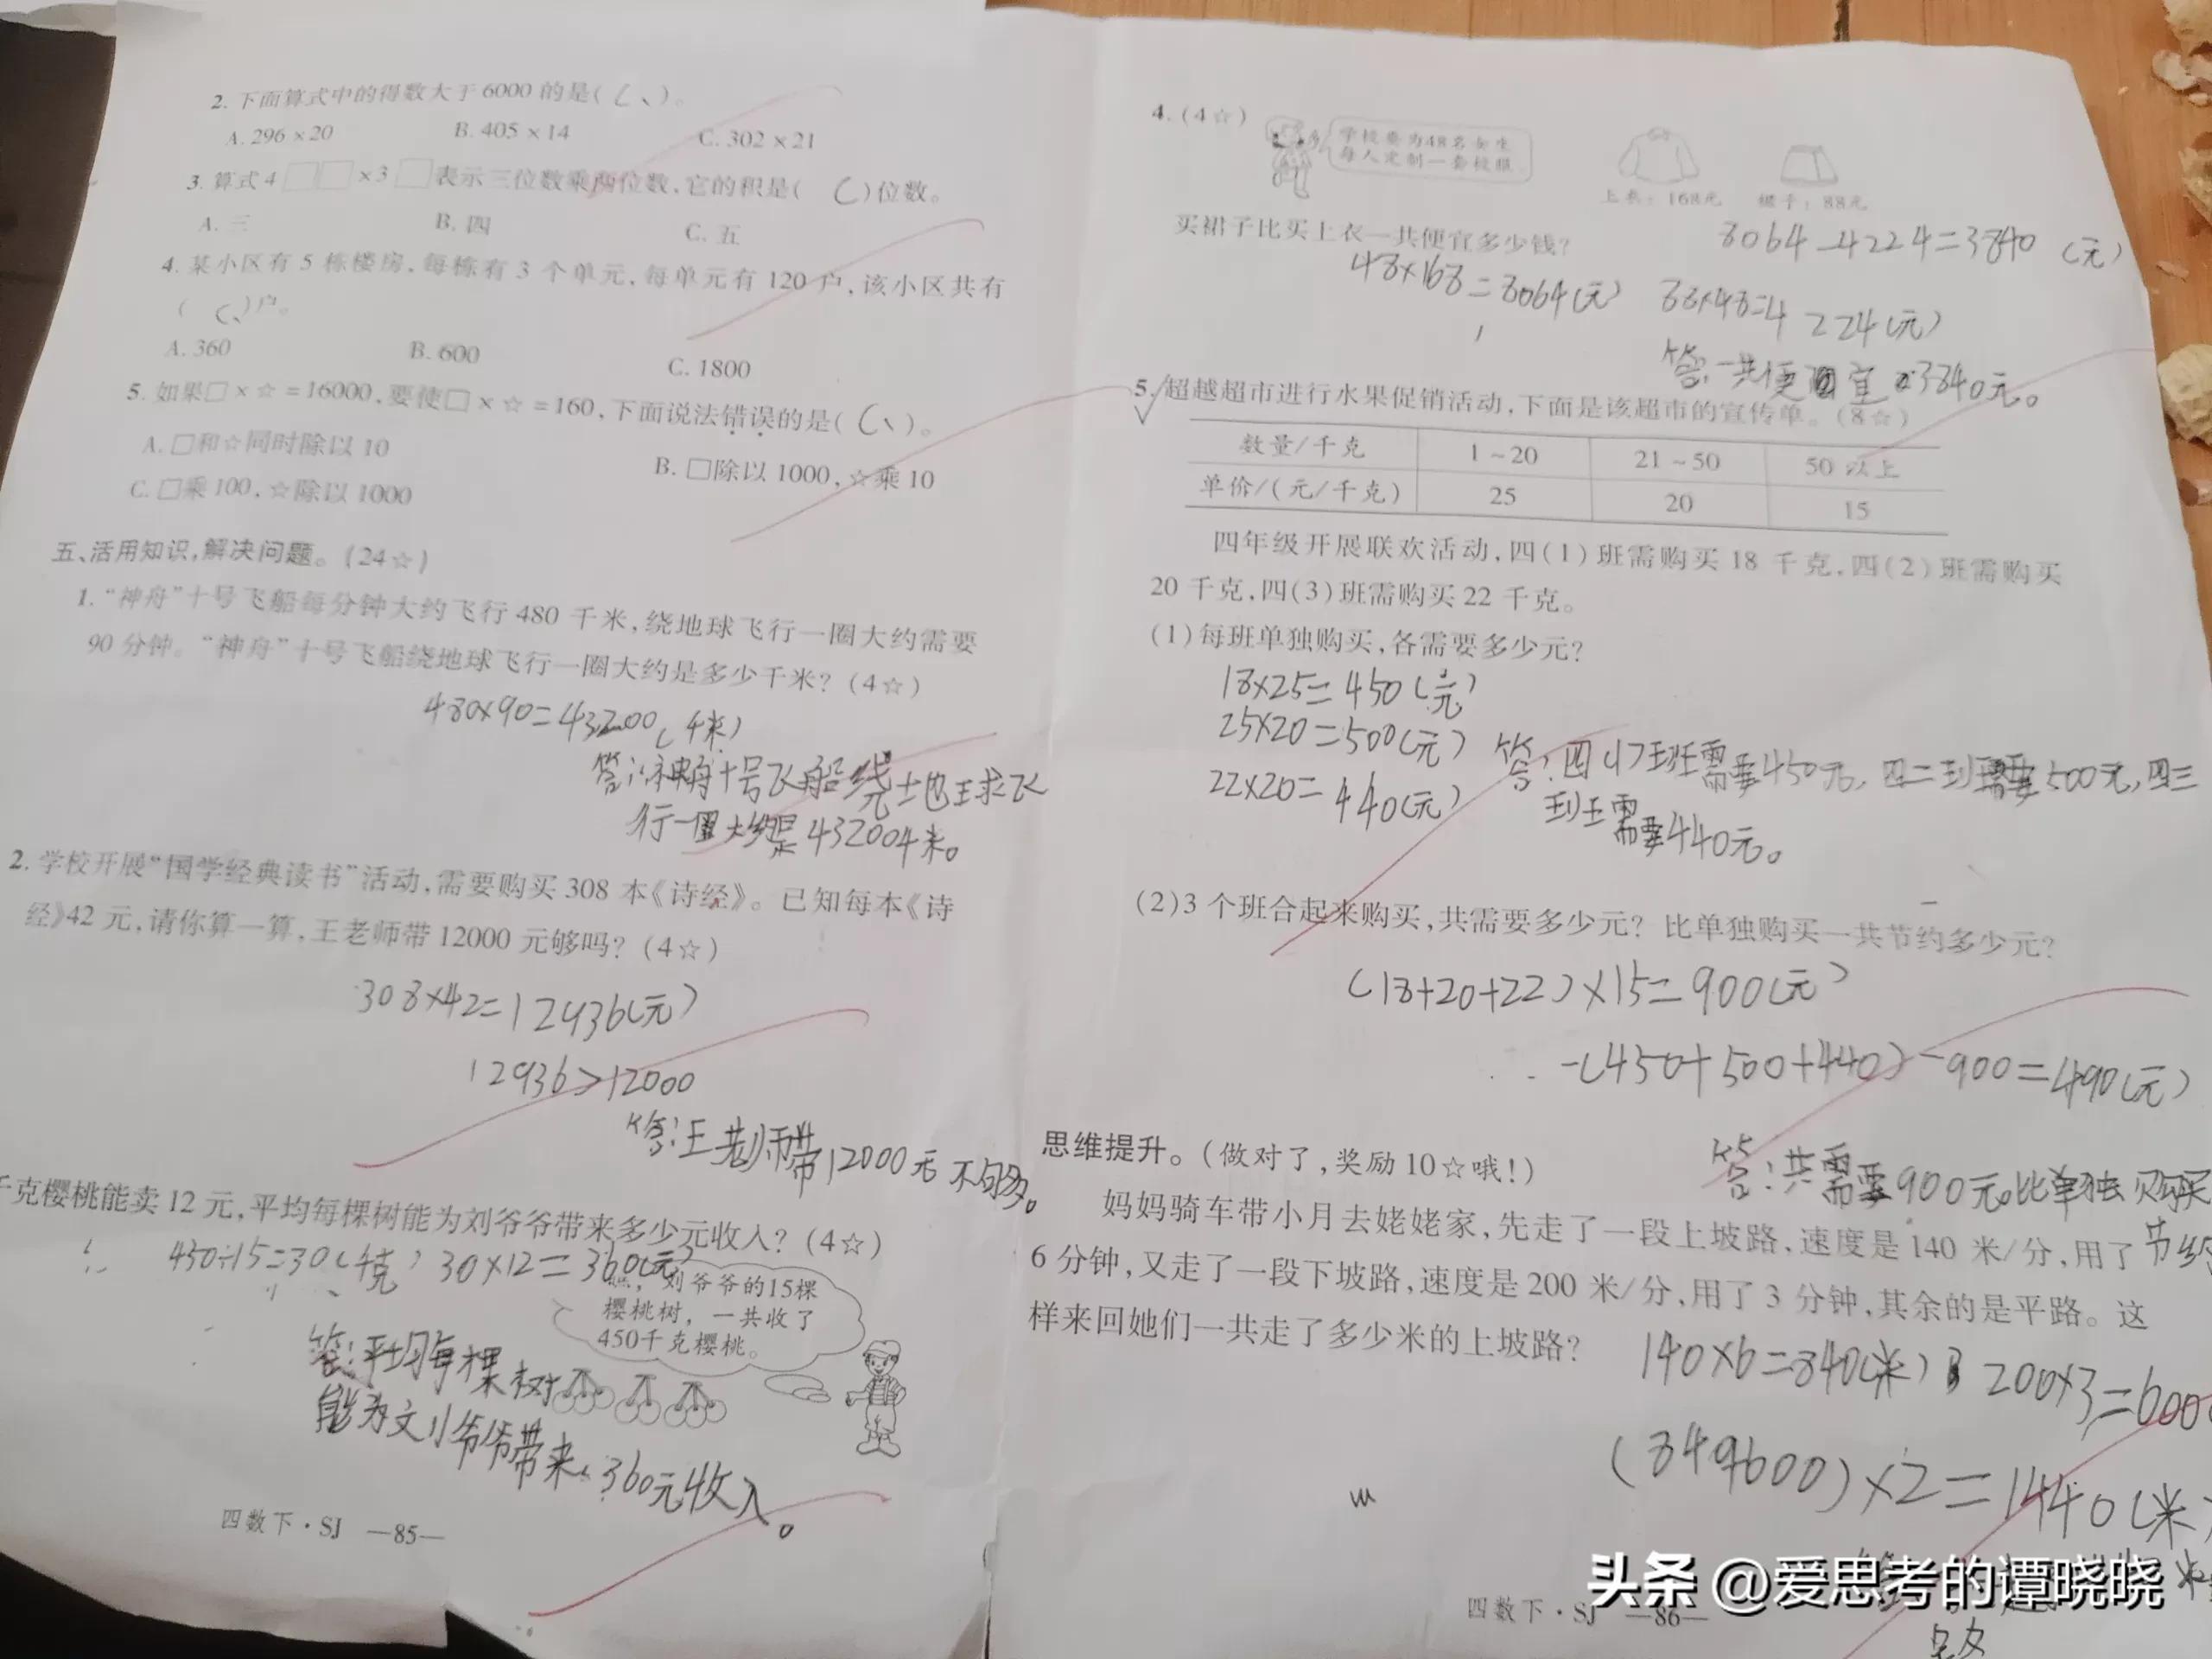 2. 下面算式中的得数大于 6000 的是( C、)。
A. 296 × 20 B. 405 × 14 C. 302 × 21
3. 算式 4□□×3□表示三位数乘两位数,它的积是( C )位数。
A. 三 B. 四 C. 五
4. 某小区有 5 栋楼房,每栋有 3 个单元,每单元有 120 户,该小区共有
( C、)户。
A. 360 B. 600 C. 1800
5. 如果□×☆=16000,要使□×☆=160,下面说法错误的是( C、)。
A. □和☆同时除以 10 B. □除以 1000,☆乘 10
C. □乘 100,☆除以 1000
五、活用知识,解决问题。(24☆)
1. “神舟”十号飞船每分钟大约飞行 480 千米,绕地球飞行一圈大约需要
90 分钟。“神舟”十号飞船绕地球飞行一圈大约是多少千米?(4☆)
480×90=43200(千米)
答:神舟十号飞船绕地球飞
行一圈大约是43200千米。
2. 学校开展“国学经典读书”活动,需要购买 308 本《诗经》。已知每本《诗
经》42 元,请你算一算,王老师带 12000 元够吗?(4☆)
308×42=12936(元)
12936>12000
答:王老师带12000元不够。
千克樱桃能卖 12 元,平均每棵树能为刘爷爷带来多少元收入?(4☆)
450÷15=30(千克) 30×12=360(元)
刘爷爷的15棵
樱桃树,一共收了
450千克樱桃。
答:平均每棵树
能为刘爷爷带来360元收入。
四数下·SJ —85—
4. (4☆)
学校要为48名女生
每人定制一套校服
上衣:168元 裙子:88元
买裙子比买上衣一共便宜多少钱?
8064-4224=3840(元)
48×168=8064(元) 88×48=4224(元)
答:一共便宜3840元。
5. 超越超市进行水果促销活动,下面是该超市的宣传单。(8☆)
数量/千克 1~20 21~50 50 以上
单价/(元/千克) 25 20 15
四年级开展联欢活动,四(1)班需购买 18 千克,四(2)班需购买
20 千克,四(3)班需购买 22 千克。
(1)每班单独购买,各需要多少元?
18×25=450(元)
25×20=500(元)
22×20=440(元)
答:四(1)班需要450元,四二班需要500元,四三
班需要440元。
(2)3 个班合起来购买,共需要多少元? 比单独购买一共节约多少元?
(18+20+22)×15=900(元)
(450+500+440)-900=490(元)
答:共需要900元。比单独购买
节约
思维提升。(做对了,奖励 10☆哦!)
妈妈骑车带小月去姥姥家,先走了一段上坡路,速度是 140 米/分,用了
6 分钟,又走了一段下坡路,速度是 200 米/分,用了 3 分钟,其余的是平路。这
样来回她们一共走了多少米的上坡路?
140×6=840(米) 200×3=600
(840+600)×2=1440(米)
四数下·SJ —86—
头条 @爱思考的谭晓晓